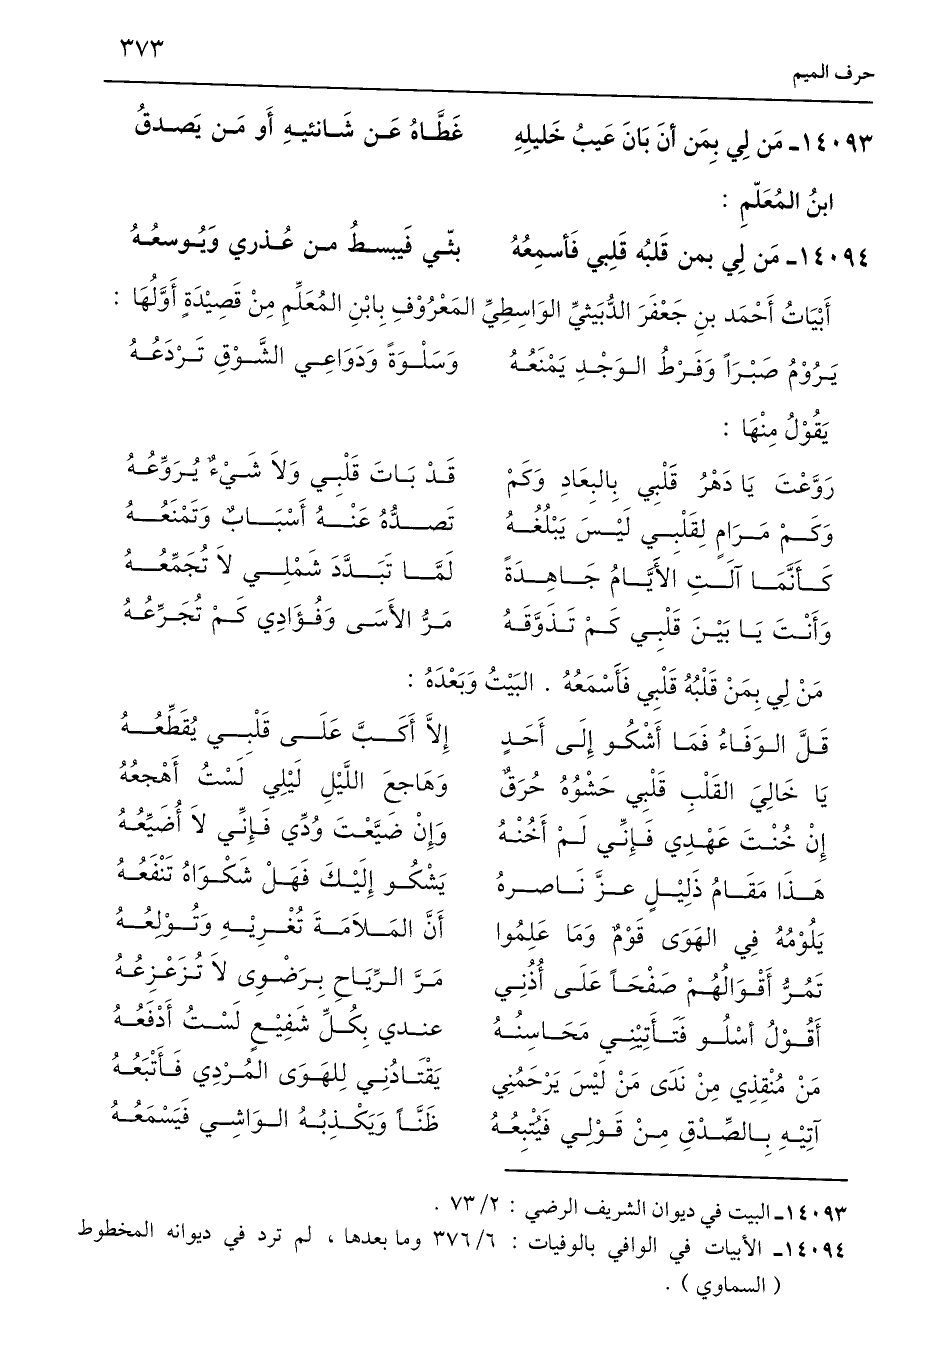 ٣٧٣
حرف الميم
١٤٠٩٣ـ مَن لِي بِمَن أنَ بَانَ عَيبُ خَليلِهِ    غَطَّاهُ عَن شَانئيهِ أَو مَن يَصدقُ
ابنُ المُعَلِّمِ :
١٤٠٩٤ـ مَن لِي بمن قَلبُه قَلِبي فَأسمِعُهُ    بثّي فَيبسطُ من عُذري وَيُوسعُهُ
أَبيَاتُ أَحْمَد بنِ جَعْفَرَ الدُّبَيْثيِّ الوَاسِطيِّ المَعْرُوْفِ بِابْنِ المُعَلِّمِ مِنْ قَصِيْدَةٍ أَوَّلُهَا :
يَرُوْمُ صَبْرَاً وَفَرْطُ الوَجْدِ يَمْنَعُهُ    وَسَلْوَةً وَدَوَاعِي الشَّوْقِ تَرْدَعُهُ
يَقُوْلُ مِنْهَا :
رَوَّعْتَ يَا دَهْرُ قَلْبِي بِالبعَادِ وَكَمْ    قَدْ بَاتَ قَلْبِي وَلاَ شَيْءٌ يُرَوِّعُهُ
وَكَمْ مَرَامٍ لِقَلْبِي لَيْسَ يَبْلُغُهُ    تَصدُّهُ عَنْهُ أَسْبَابٌ وَتَمْنَعُهُ
كَأَنَّمَا آلَتِ الأَيَّامُ جَاهِدَةً    لَمَّا تَبَدَّدَ شَمْلِي لاَ تُجَمِّعُهُ
وَأَنْتَ يَا بَيْنَ قَلْبِي كَمْ تَذَوَّقَهُ    مَرُّ الأَسَى وَفُؤَادِي كَمْ تُجَرِّعُهُ
مَنْ لِي بِمَنْ قَلْبُهُ قَلْبِي فَأَسْمَعُهُ . البَيْتُ وَبَعْدَهُ :
قَلَّ الوَفَاءُ فَمَا أَشْكُو إِلَى أَحَدٍ    إِلاَّ أَكَبَّ عَلَى قَلْبِي يُقَطِّعُهُ
يَا خَالِيَ القَلْبِ قَلْبِي حَشْوُهُ حُرَقٌ    وَهَاجِعَ اللَّيْلِ لَيْلِي لَسْتُ أَهْجعُهُ
إِنْ خُنْتَ عَهْدِي فَإِنِّي لَمْ أَخُنْهُ    وَإِنْ ضَيَّعْتَ وُدِّي فَإِنِّي لاَ أُضَيِّعُهُ
هَذَا مَقَامُ ذَلِيْلٍ عزَّ نَاصرهُ    يَشْكُو إِلَيْكَ فَهَلْ شَكْوَاهُ تَنْفَعُهُ
يَلُوْمُهُ فِي الهَوَى قَوْمٌ وَمَا عَلِمُوا    أَنَّ المَلاَمَةَ تُغْرِيْهِ وَتُوْلِعُهُ
تَمُرُّ أَقْوَالُهُمْ صَفْحَاً عَلَى أُذُنِي    مَرَّ الرِّيَاحِ بِرَضْوِى لاَ تُزَعْزِعُهُ
أَقُوْلُ أَسْلُو فَتَأْتِيْنِي مَحَاسِنُهُ    عندي بِكُلِّ شَفِيْعٍ لَسْتُ أَدْفَعُهُ
مَنْ مُنْقِذِي مِنْ نَدَى مَنْ لَيْسَ يَرْحَمُنِي    يَقْتَادُنِي لِلهَوَى المُرْدِي فَأَتْبَعُهُ
آتِيْهِ بِالصِّدْقِ مِنْ قَوْلِي فَيُتْبِعُهُ    ظَنَّاً وَيَكْذِبُهُ الوَاشِي فَيَسْمَعُهُ
١٤٠٩٣ـ البيت في ديوان الشريف الرضي : ٢/ ٧٣ .
١٤٠٩٤ـ الأبيات في الوافي بالوفيات : ٦/ ٣٧٦ وما بعدها ، لم ترد في ديوانه المخطوط
( السماوي ) .